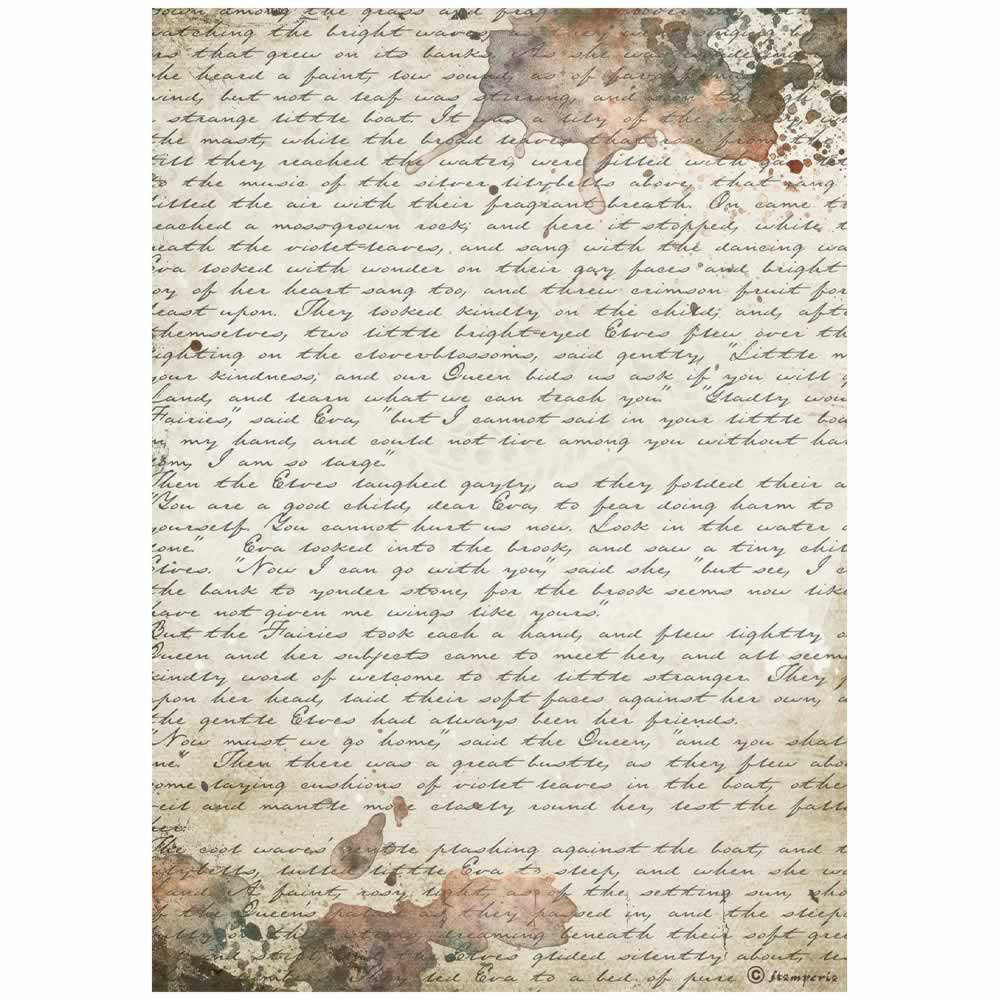 down among the grass and frag
watching the bright waves, a singing be
rs that grew on its banks. As she was
he heard a faint, low sound, as of far
wind, but not a leaf was stirring, and soon
strange little boat. It was a lily of the
the mast, while the broad leaves that
till they reached the water, were filled with ga
to the music of the silver lilybells above, that rang
filled the air with their fragrant breath. On came t
eached a mossgrown rock; and here it stopped, while t
eath the violet-leaves, and sang with the dancing wa
Eva looked with wonder on their gay faces and bright
oy of her heart sang too, and threw crimson fruit for
east upon. They looked kindly on the child, and, afte
themselves, two little bright-eyed Elves flew over th
ighting on the cloverblossoms, said gently, "Little m
your kindness; and our Queen bids us ask if you will g
Land, and learn what we can teach you." "Gladly wou
Fairies," said Eva, "but I cannot sail in your little boa
n my hand, and could not live among you without har
om, I am so large."
Then the Elves laughed gayly, as they folded their a
"You are a good child, dear Eva, to fear doing harm to
yourself. You cannot hurt us now. Look in the water a
one." Eva looked into the brook, and saw a tiny chil
Elves. "Now I can go with you," said she, "but see, I c
the bank to yonder stone, for the brook seems now like
have not given me wings like yours."
But the Fairies took each a hand, and flew lightly o
Queen and her subjects came to meet her, and all seem
kindly word of welcome to the little stranger. They p
upon her head, laid their soft faces against her own, a
the gentle Elves had always been her friends.
"Now must we go home," said the Queen, "and you shal
ne." Then there was a great bustle, as they flew abo
ome laying cushions of violet leaves in the boat, othe
veil and mantle more closely round her, lest the falli
her.
The cool waves' gentle plashing against the boat, and t
lilybells, lulled little Eva to sleep, and when she wo
and. A faint, rosy light, as of the setting sun, sho
f the Queen's palace as they passed in, and the sleepi
dreaming beneath their soft gree
Elves glided silently about, le
They led Eva to a bed of pure
© stamperia